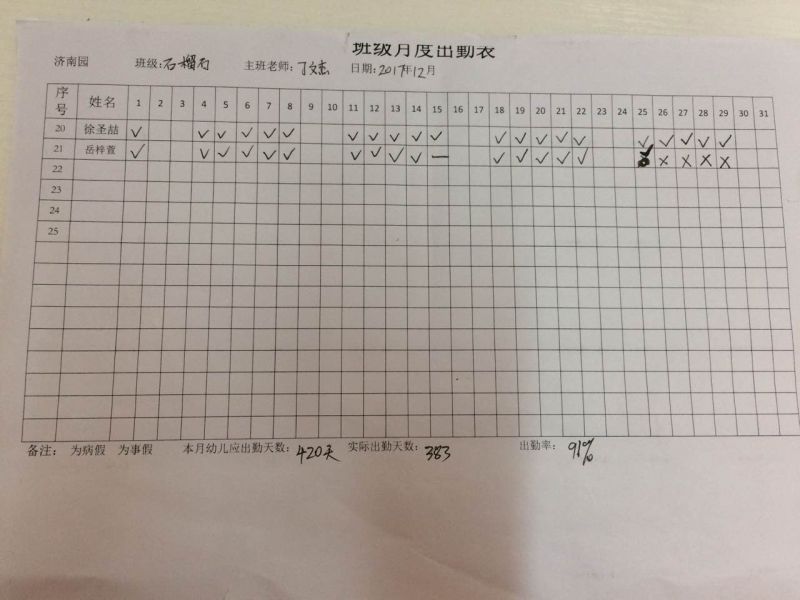 班级月度出勤表
济南园 班级:石榴石 主班老师:丁文杰 日期:2017年12月
序号 姓名 1 2 3 4 5 6 7 8 9 10 11 12 13 14 15 16 17 18 19 20 21 22 23 24 25 26 27 28 29 30 31
20 徐圣喆 ✓ ✓ ✓ ✓ ✓ ✓ ✓ ✓ ✓ ✓ ✓ ✓ ✓ ✓ ✓ ✓ ✓ ✓ ✓ ✓ ✓
21 岳梓萱 ✓ ✓ ✓ ✓ ✓ ✓ ✓ ✓ ✓ ✓ — ✓ ✓ ✓ ✓ ✓ ✓ × × × ×
22
23
24
25
备注: 为病假 为事假 本月幼儿应出勤天数:420天 实际出勤天数:383 出勤率:91%